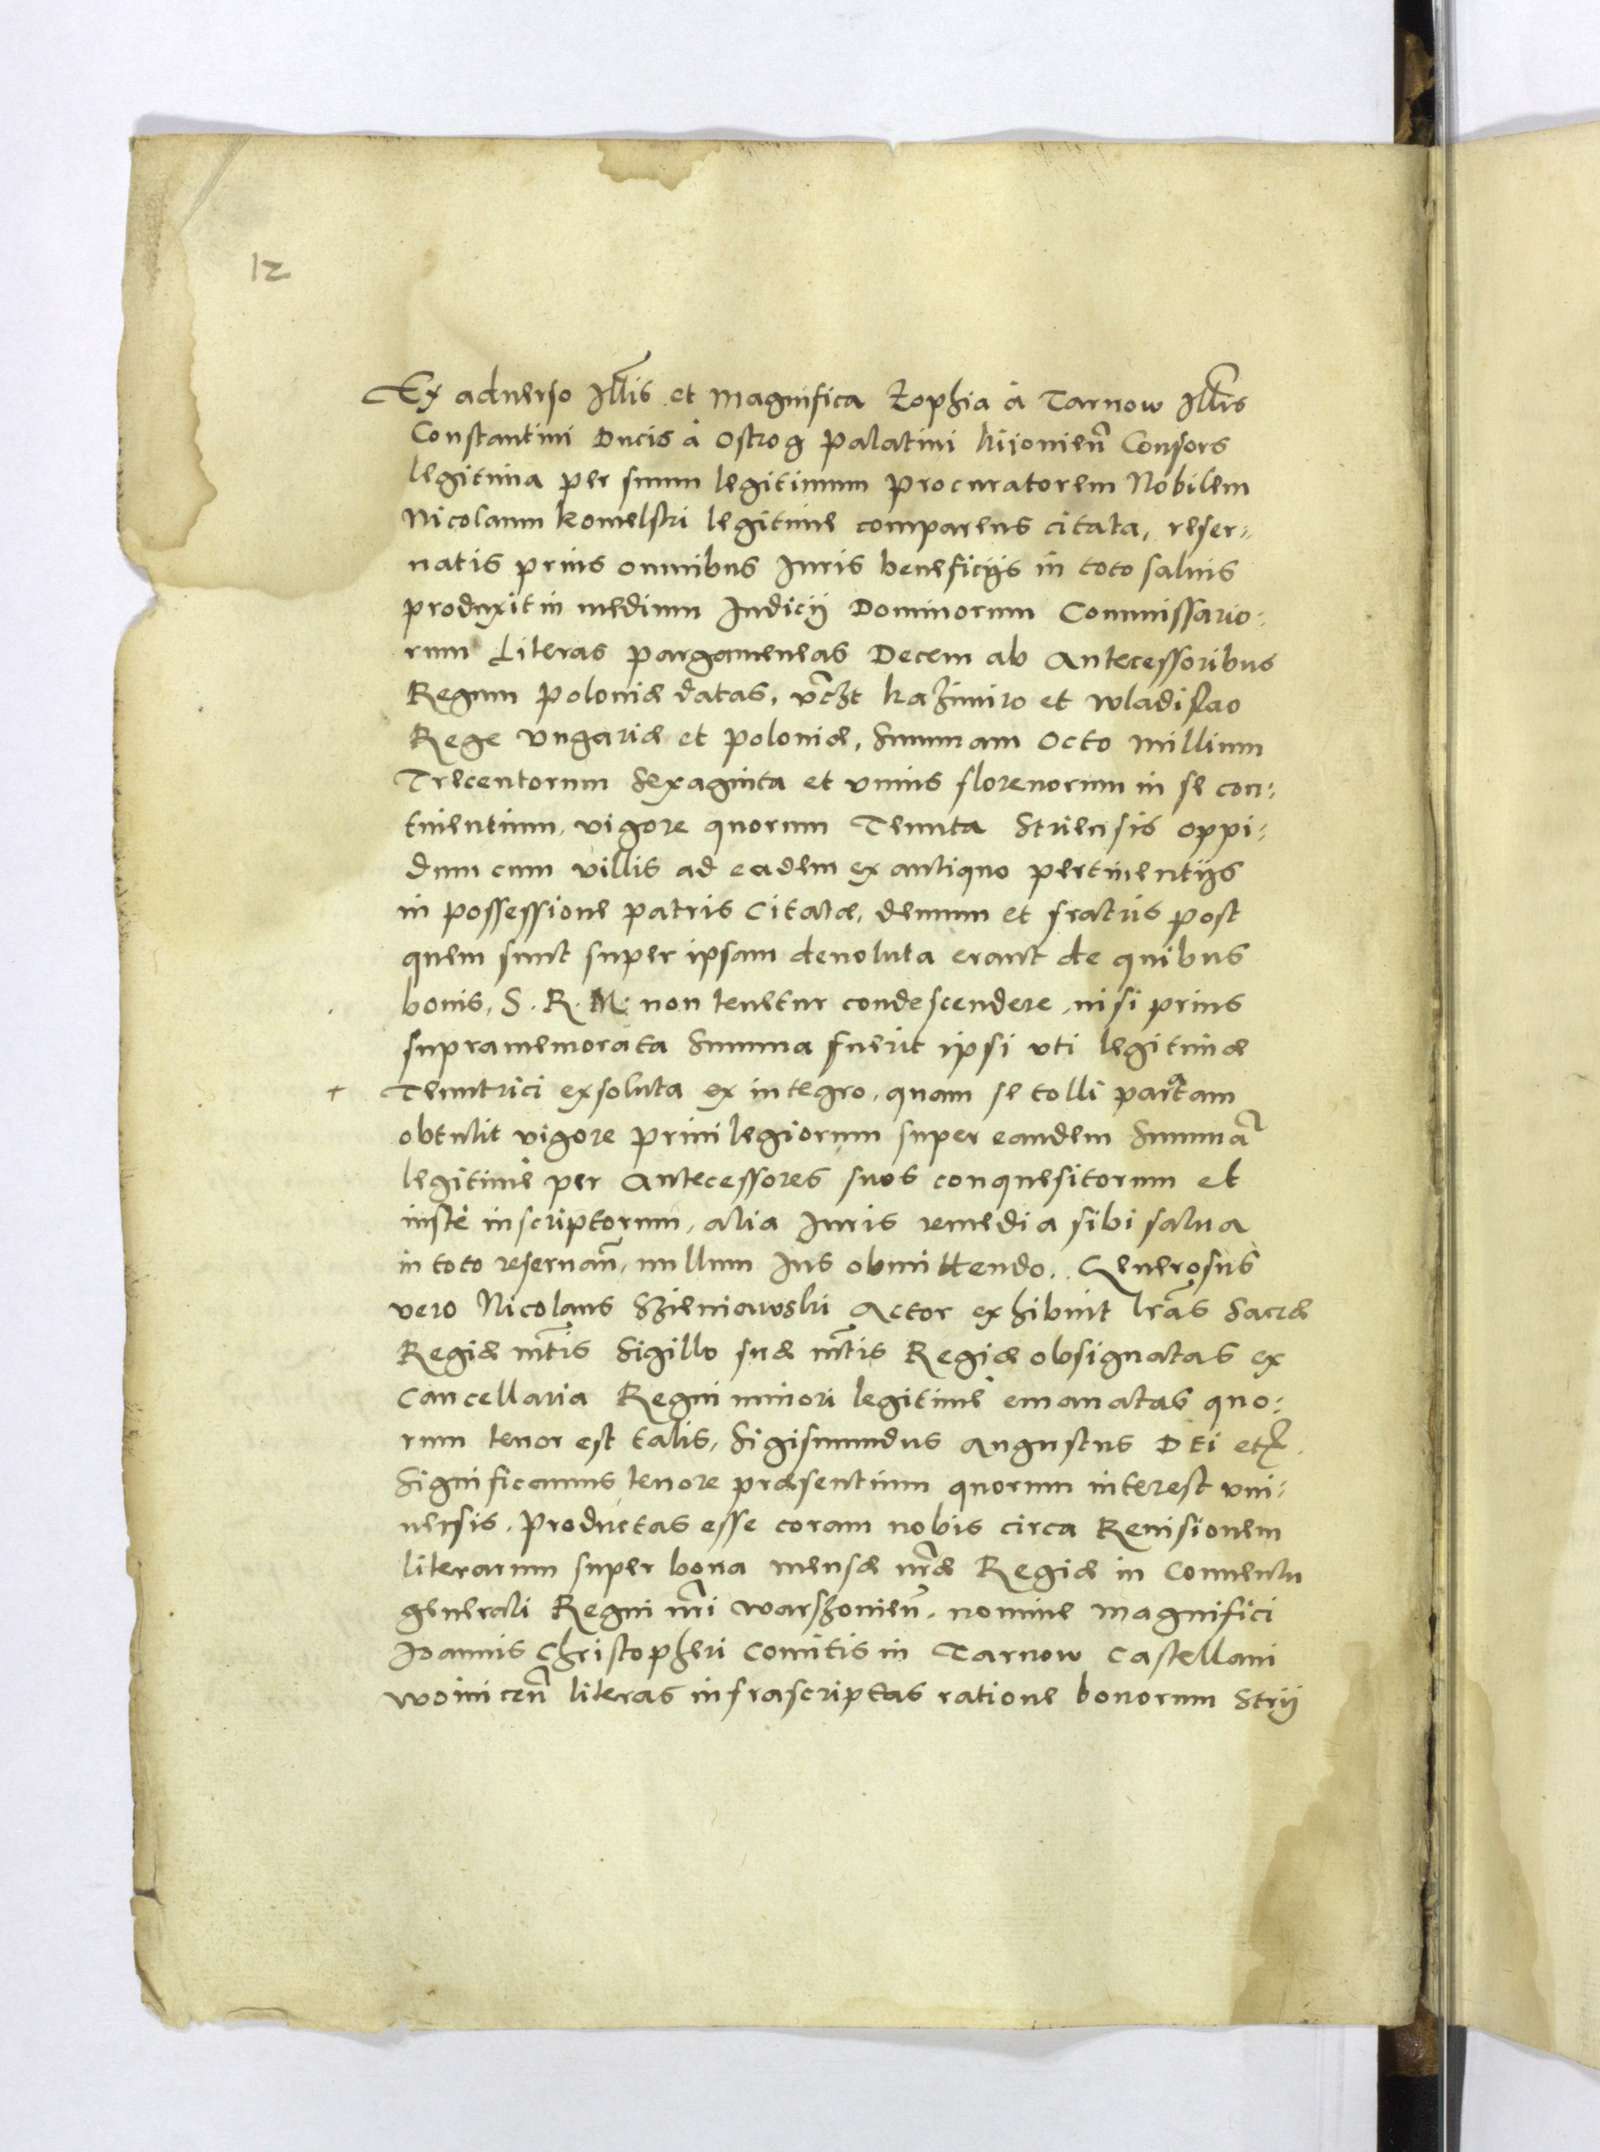 12
Ex aduerso Illris et Magnifica Zophia à Tarnow Illris
Constantini Ducis à Ostrog Palatini Kijouieñ Consors
legitima per suum legitimum procuratorem Nobilem
Nicolaum Komelski legitime comparens citata, reser-
uatis prius omnibus Iuris beneficijs in toto saluis
produxit in medium Iudicij Dominorum Commissario-
rum Literas pargameneas Decem ab Antecessoribus
Regum Poloniæ datas, vczt Kazimiro et Wladislao
Rege Vngariæ et Poloniæ, Summam Octo Millium
Trecentorum Sexaginta et vnius florenorum in se con-
tinentium, vigore quorum Tenuta Striensis oppi-
dum cum villis ad eadem ex antiquo pertinentijs
in possessione patris Citatæ, demum et fratris post
quem sunt super ipsam deuoluta erant de quibus
bonis, S. R. M. non tenetur condescendere, nisi prius
supramemorata Summa fuerit ipsi vti legitimæ
+ Tenutrici exsoluta ex integro, quam se tolli paratam
obtulit vigore priuilegiorum super eandem Summã
legitimè per Antecessores suos conquesitorum et
iustè inscriptorum, alia Iuris remedia sibi salua
in toto reseruañ, nullum Ius obmittendo. Generosus
vero Nicolaus Szieniawski Actor exhibuit lras Sacræ
Regiæ mtis Sigillo suæ mtis Regiæ obsignatas ex
Cancellaria Regni minori legitimè emanatas quo-
rum tenor est talis, Sigismundus Augustus Dei etc.
Significamus tenore præsentium quorum interest vni-
uersis. Productas esse coram nobis circa Reuisionem
literarum super bona mensæ nræ Regiæ in Conuentu
generali Regni nri Warszouieñ, nomine Magnifici
Ioannis Christopheri Comitis in Tarnow Castellani
Woiniceñ literas infrascriptas ratione bonorum Strij